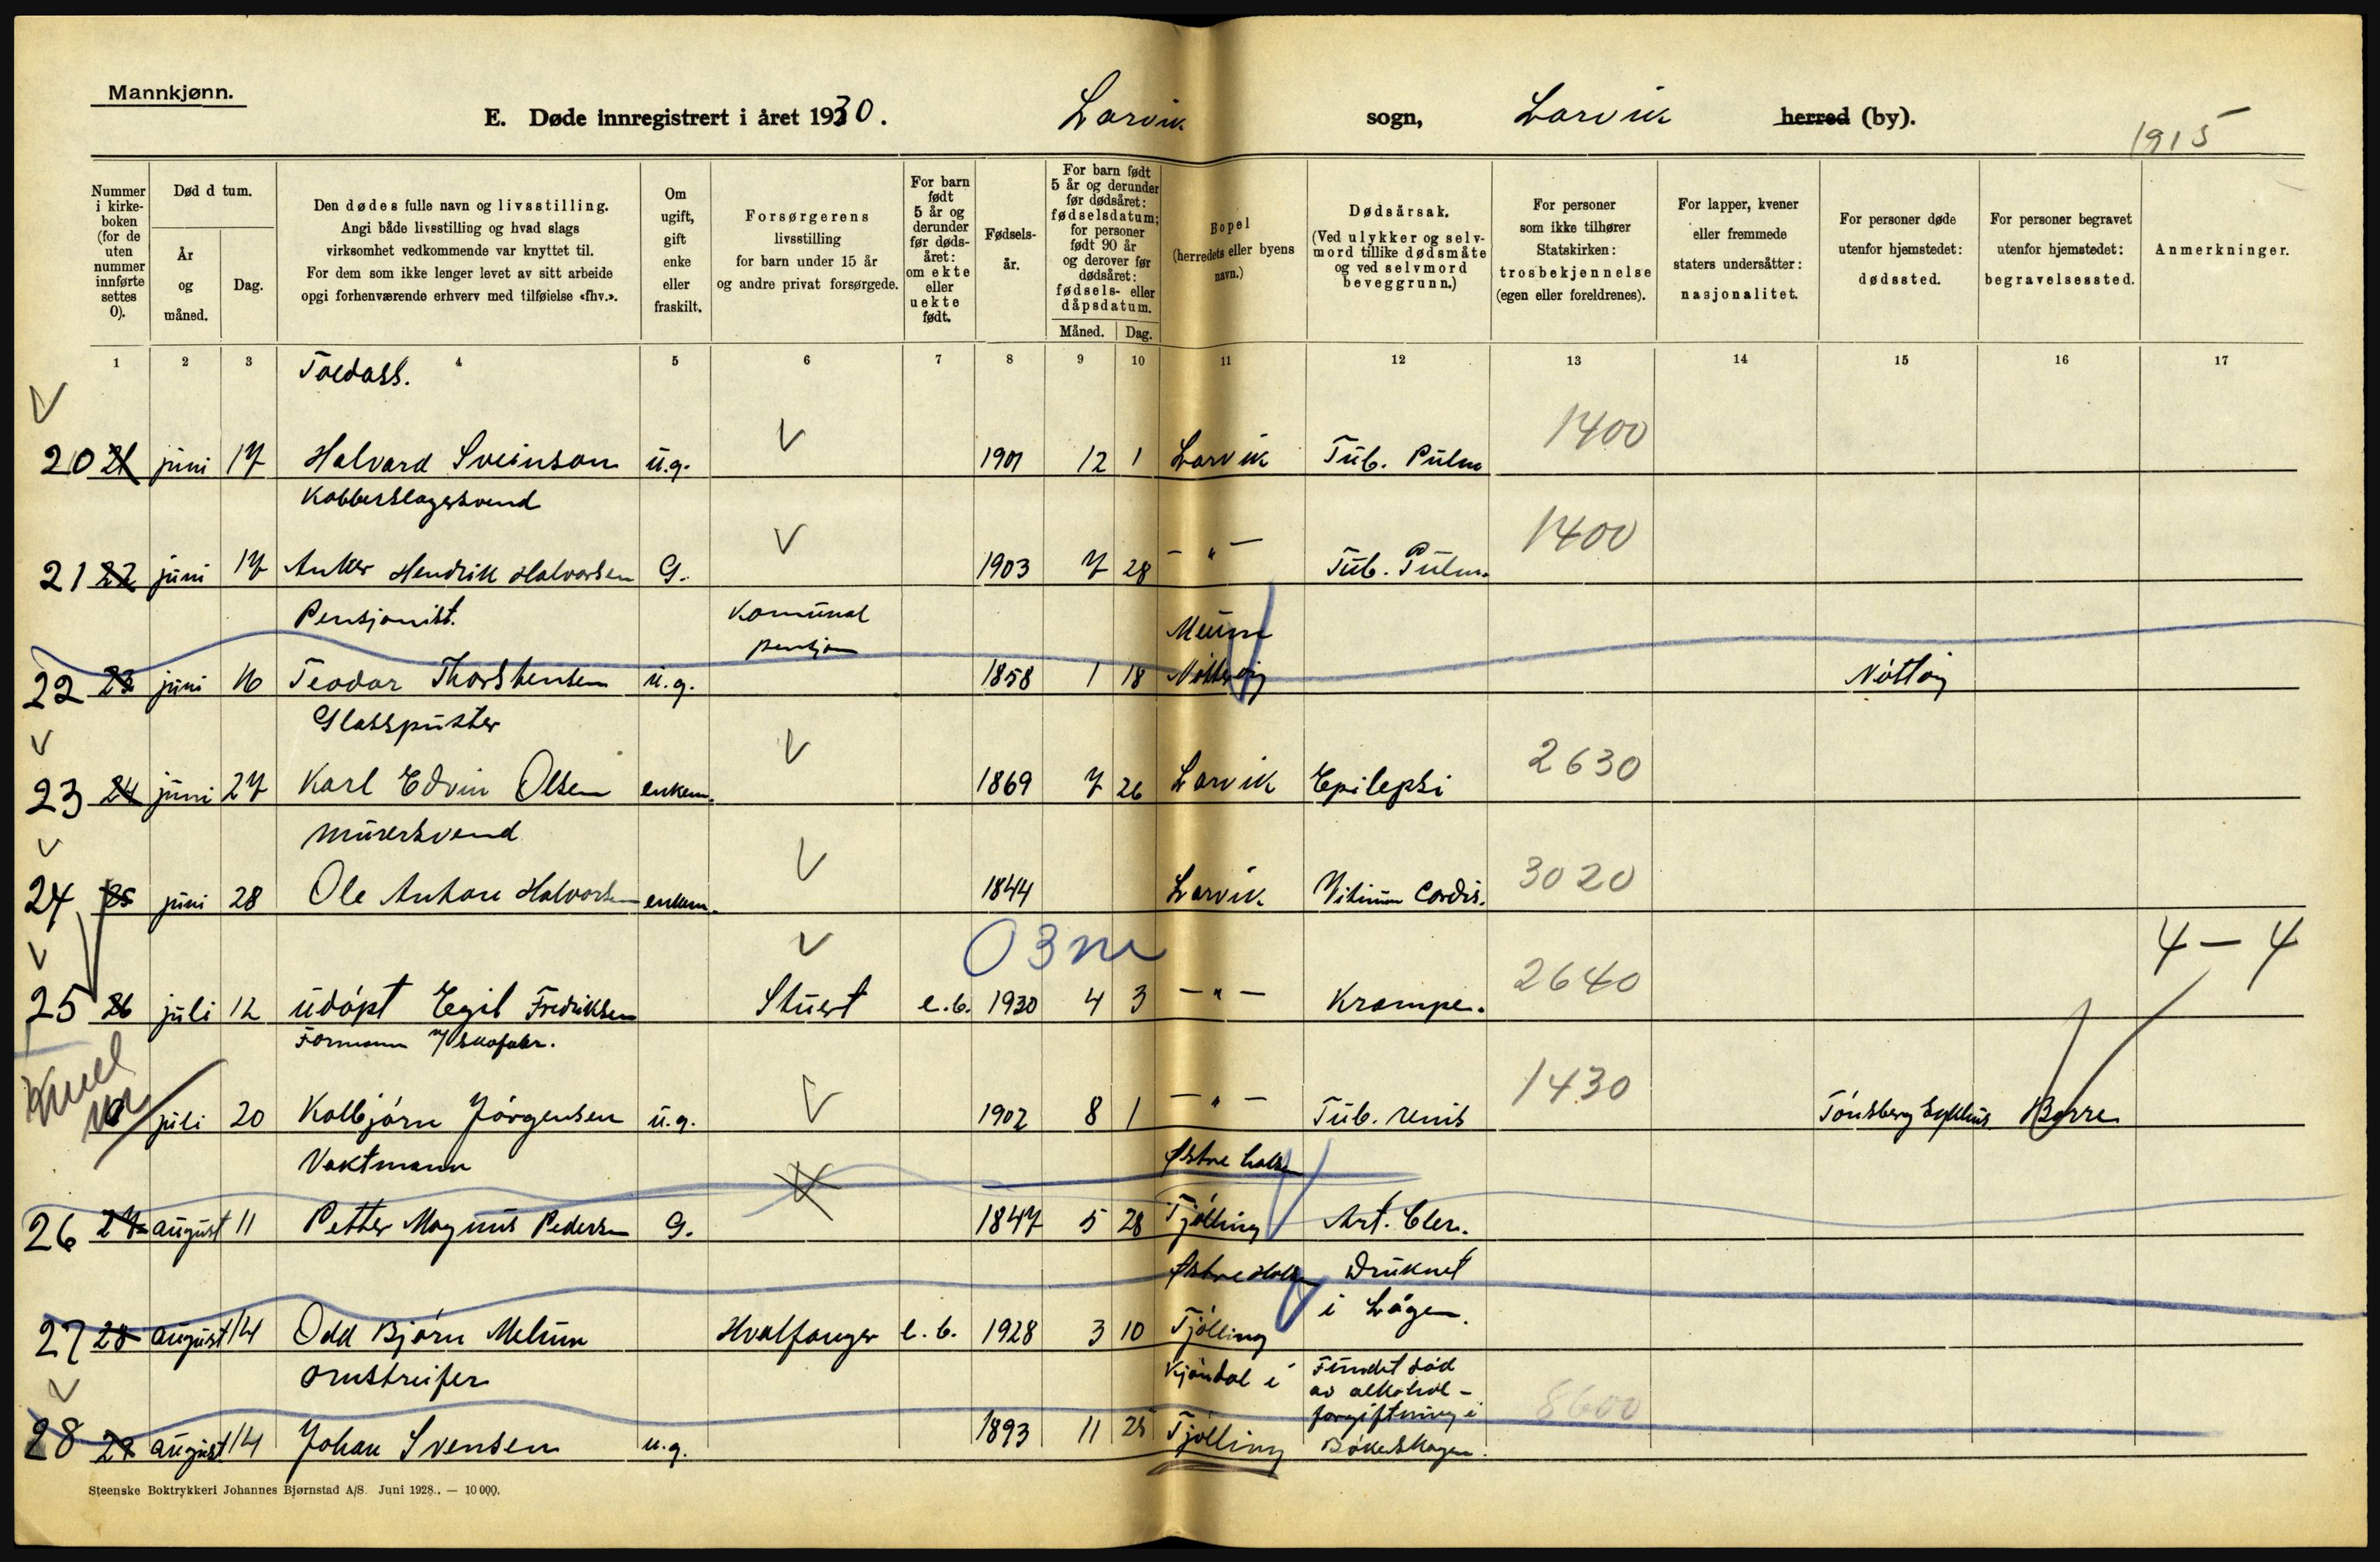 Mannkjønn.
E. Døde innregistrert i året 1930. Larvik sogn, Larvik herred (by).
1915
Nummer i kirke- boken (for de uten nummer innførte settes 0).
Død d tum.
År og måned.
Dag.
Den dødes fulle navn og livsstilling.
Angi både livsstilling og hvad slags
virksomhet vedkommende var knyttet til.
For dem som ikke lenger levet av sitt arbeide
opgi forhenværende erhverv med tilføielse «fhv.».
Om ugift, gift enke eller fraskilt.
Forsørgerens
livsstilling
for barn under 15 år
og andre privat forsørgede.
For barn født 5 år og derunder før døds- året: om ekte eller uekte født.
Fødsels- år.
For barn født 5 år og derunder før dødsåret: fødselsdatum; for personer født 90 år og derover før dødsåret: fødsels- eller dåpsdatum.
Måned. Dag.
Bopel
(herredets eller byens
navn.)
Dødsårsak.
(Ved ulykker og selv-
mord tillike dødsmåte
og ved selvmord
beveggrunn.)
For personer
som ikke tilhører
Statskirken:
trosbekjennelse
(egen eller foreldrenes).
For lapper, kvener
eller fremmede
staters undersåtter:
nasjonalitet.
For personer døde
utenfor hjemstedet:
dødssted.
For personer begravet
utenfor hjemstedet:
begravelsessted.
Anmerkninger.
1 2 3 4 5 6 7 8 9 10 11 12 13 14 15 16 17
1400
20 21 juni 17 Halvard Sveinson u.g. 1901 12 1 Larvik Tub. Pulm
Kobberslagersvend
1400
21 22 juni 17 Anker Hendrik Halvorsen G. 1903 7 28 — " — Tub. Pulm.
Pensjonist. Komunal
pensjon
22 23 juni 16 Teodor Thorstensen u.g. 1858 1 18 Nøtterøy Nøttøy
Glasspuster
2630
23 24 juni 27 Karl Edvin Olsen enkem. 1869 7 26 Larvik Epilepsi
Murersvend
3020
24 25 juni 28 Ole Anton Halvorsen enkem. 1844 Larvik Vitium Cordis.
03m
4 — 4
2640
25 26 juli 12 udøpt Egil Fredriksen Stuert e.b. 1930 4 3 — " — Krampe.
Formann v/ skofabr.
1430
0 juli 20 Kolbjørn Jørgensen u.g. 1902 8 1 — " — Tub. renis Tønsberg Sykehus Borre
Vaktmann Østre Halsen
26 27 august 11 Petter Magnus Pedersen G. 1847 5 28 Tjølling Art. Cler.
Østre Halsen Druknet
i Lågen.
27 28 august 14 Odd Bjørn Melum Hvalfanger e.b. 1928 3 10 Tjølling
Omstreifer Kjøndal i Fundet død
av alkohol-
forgiftning i
8600
28 29 august 14 Johan Svensen u.g. 1893 11 25 Tjølling Bøkeskogen.
Steenske Boktrykkeri Johannes Bjørnstad A/S. Juni 1928. — 10 000.